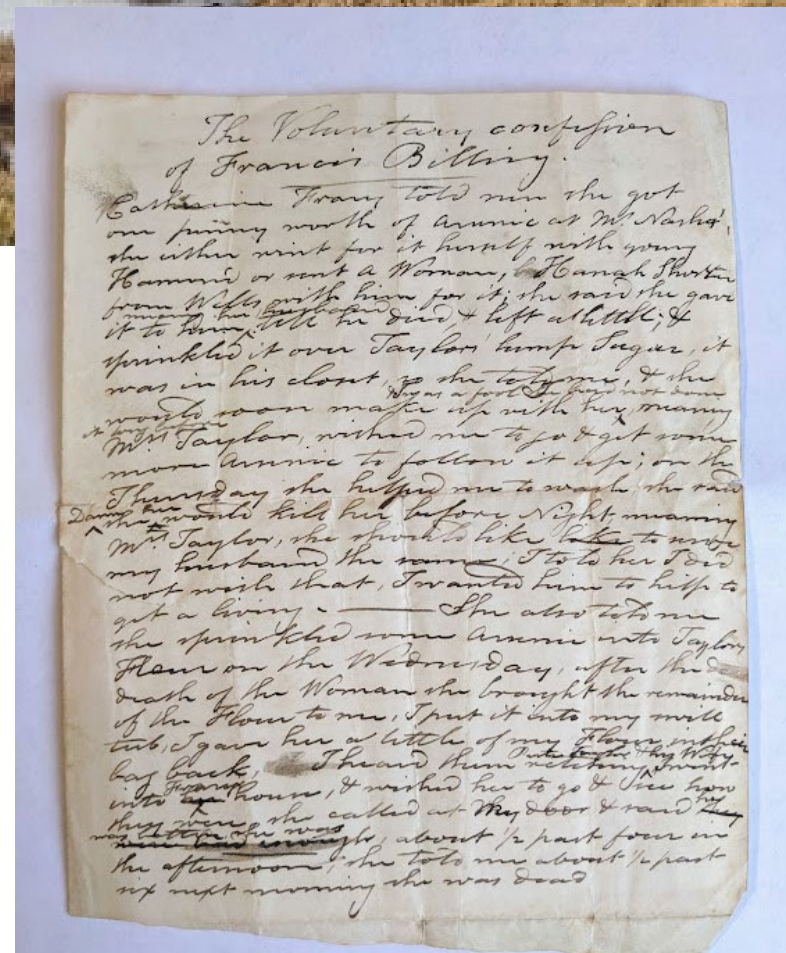 The Voluntary confession
of Francis Billing.
Catherine Frary told me she got
one penny worth of arsenic at Mr Nash's,
she either went for it herself with young
Hammd or sent a Woman, Hanah Shorten
from Wells with him for it; she said she gave
meaning her husband
it to him, till he died, & left a little; &
sprinkled it over Taylors lump Sugar, it
was in his closet, so she told me, & she
was a fool she had not done
would soon make it up with her, meaning
it long before
Mrs Taylor, wished me to go & get some
more arsenic to follow it up; on the
Thursday she helped me to wash she said
Damn her
she would kill her before Night, meaning
Mrs Taylor, she should like to serve
my husband the same; I told her I did
not wish that, I wanted him to help to
get a living. — She also told me
she sprinkled some arsenic into Taylors
Flour on the Wednesday, after the
death of the Woman she brought the remainder
of the Flour to me, I put it into my mill
tub, I gave her a little of my Flour in their
Peter Taylor & his Wife
bag back, I heard them retching, I went
Frarys
into house, & wished her to go & see how
they were, she called at My door & said
was better she was
were bad enough, about ½ past four in
the afternoon; she told me about ½ past
six next morning she was dead